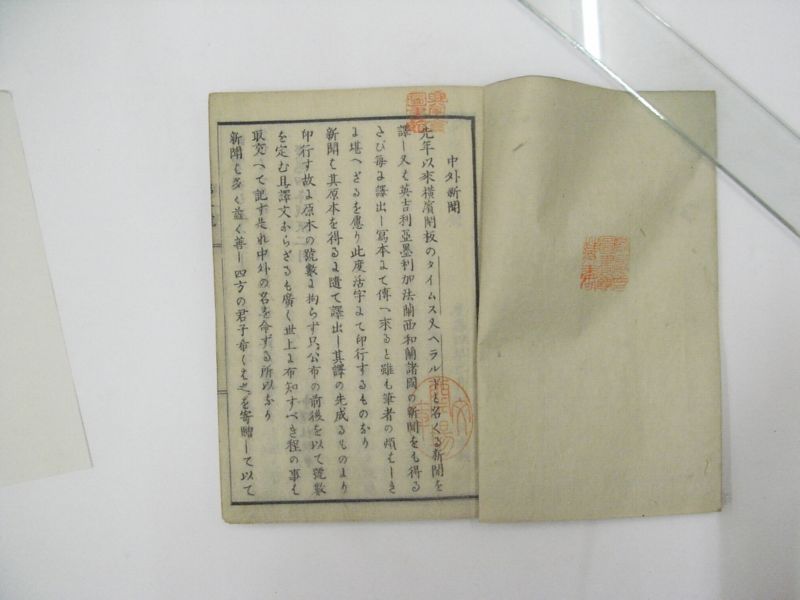 中外新聞
先年以来横濱開板のタイムス又ヘラルドと名くる新聞を
譯し又も英吉利亞墨利加法蘭西和蘭諸國の新聞をも得る
さび毎に譯出し寫本にて傳へ來ると雖も筆者の煩はしき
に堪へざるを慮り此度活字にて印行するものなり
新聞も其原本を得るに隨て譯出し其譯の先成るものより
印行す故に原本の號數に拘らず只公布の前後を以て號數
を定む且譯文ならざるも廣く世上に布知すべき程の事も
取交へて記す是れ中外の名を命ずる所以なり
新聞も多く益く善し四方の君子希くは之を寄贈して以て